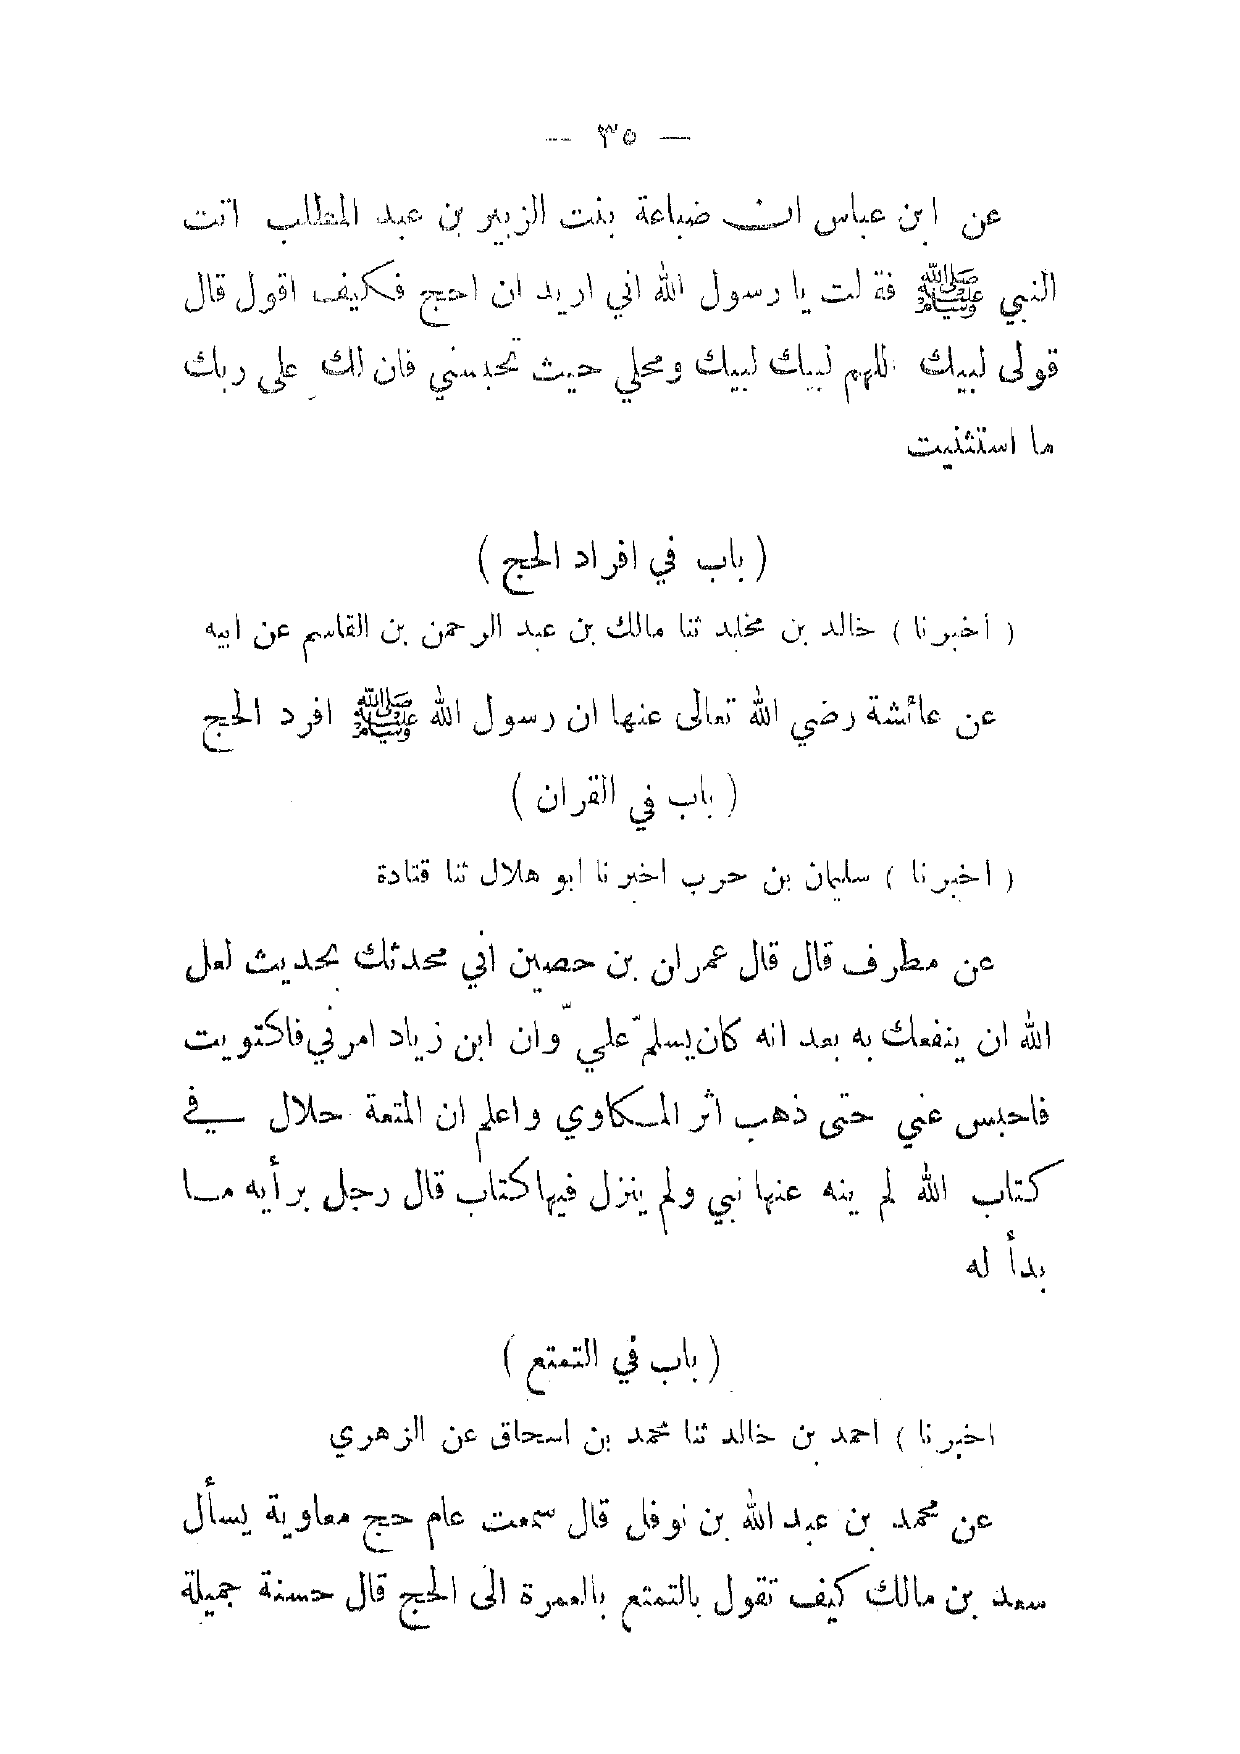 — ٣٥ —
عن ابن عباس ان ضباعة بنت الزبير بن عبد المطلب اتت
النبي ﷺ فقالت يا رسول الله اني اريد ان احج فكيف اقول قال
قولى لبيك اللهم لبيك لبيك ومحلي حيث تحبسني فان لك على ربك
ما استثنيت
( باب في افراد الحج )
( أخبرنا ) خالد بن مخلد ثنا مالك بن عبد الرحمن بن القاسم عن ابيه
عن عائشة رضي الله تعالى عنها ان رسول الله ﷺ افرد الحج
( باب في القران )
( اخبرنا ) سليمان بن حرب اخبرنا ابو هلال ثنا قتادة
عن مطرف قال قال عمران بن حصين اني محدثك بحديث لعل
الله ان ينفعك به بعد انه كان يسلم علي وان ابن زياد امرني فاكتويت
فاحبس عني حتى ذهب اثر المكاوي واعلم ان المتعة حلال في
كتاب الله لم ينه عنها نبي ولم ينزل فيها كتاب قال رجل برأيه ما
بدأ له
( باب في التمتع )
اخبرنا ) احمد بن خالد ثنا محمد بن اسحاق عن الزهري
عن محمد بن عبد الله بن نوفل قال سمعت عام حج معاوية يسأل
سعد بن مالك كيف تقول بالتمتع بالعمرة الى الحج قال حسنة جميلة